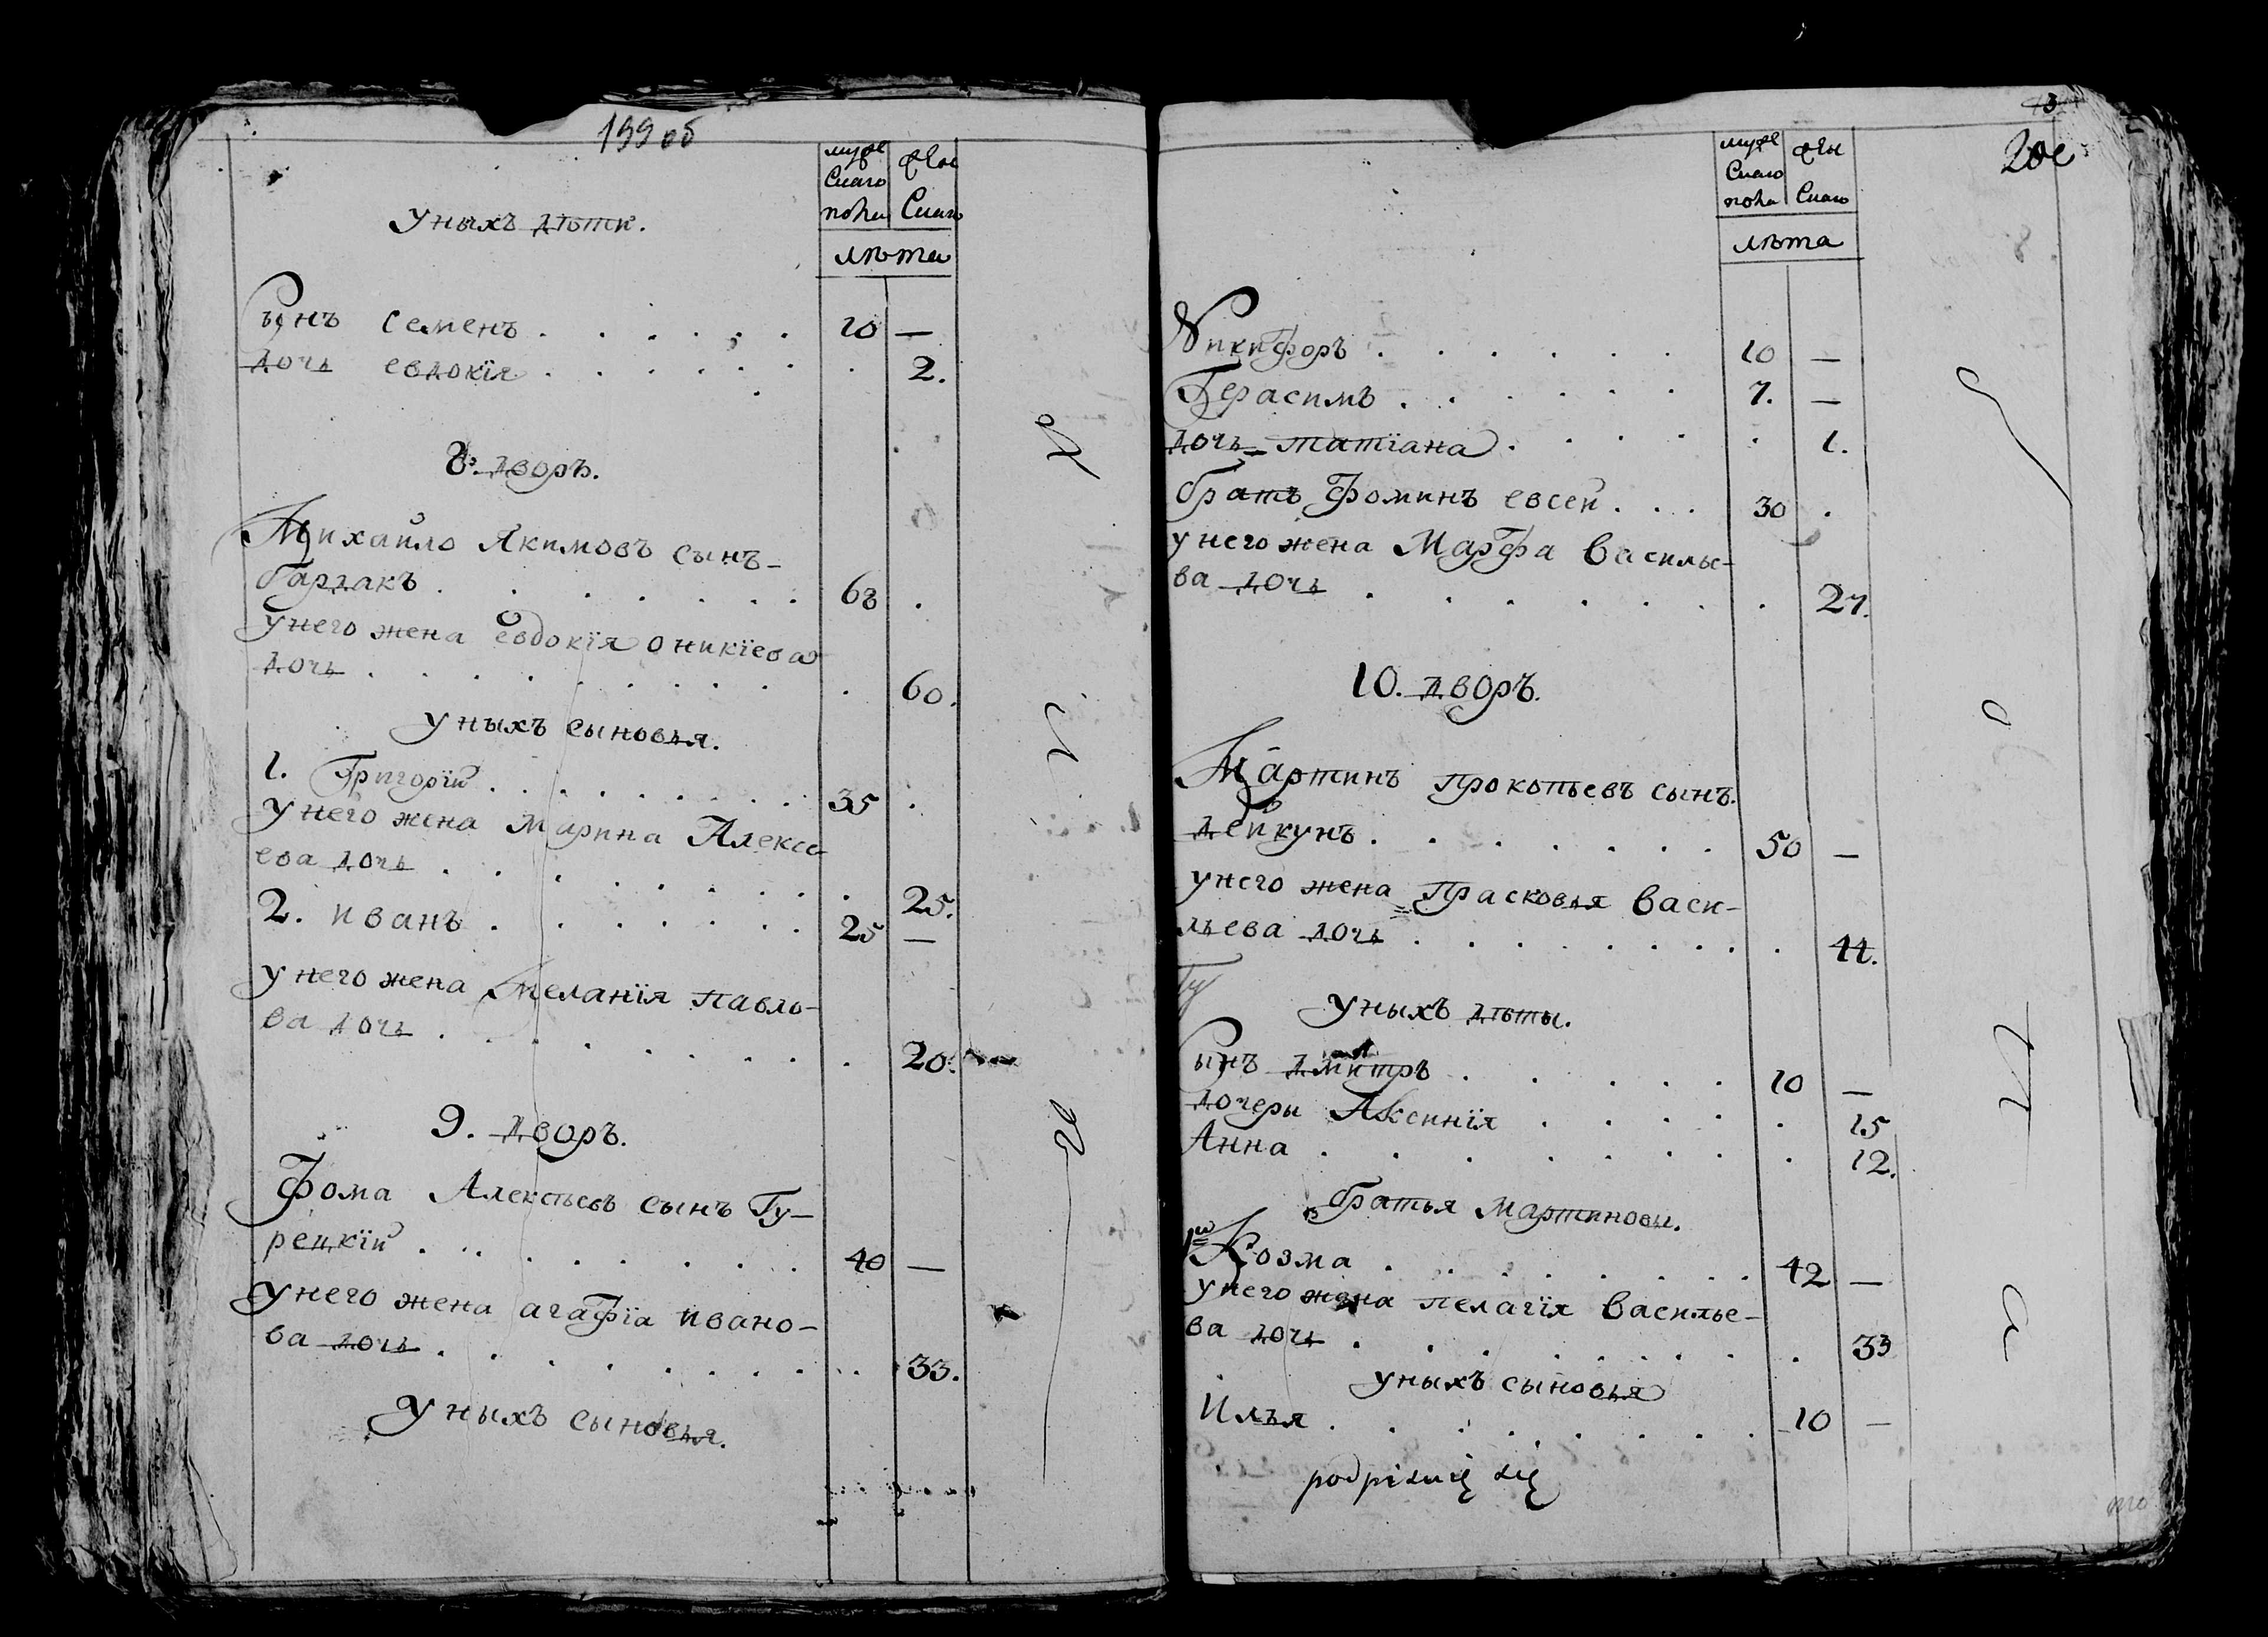 199 об
муже
скаго
пола
жен
скаго
лѣта
У ныхъ дѣти.
Сынъ Семенъ . . . . . . 10 —
дочь евдокїя . . . . . . . 2.
8. дворъ.
Михайло Якимовъ сынъ
бардакъ . . . . . . . 68 .
У него жена евдокїя оникїева
дочь . . . . . . . . . 60.
У ныхъ сыновья.
1. Григорїй . . . . . . . 35 .
У него жена Марина Алексе-
ева дочь . . . . . . . . 25.
2. иванъ . . . . . . 25 —
У него жена Меланїя павло-
ва дочь . . . . . . . . 20.
9. дворъ.
Фома Алексѣевъ сынъ Ту-
рецкїй . . . . . . . . 40 —
У него жена агафїа ивано-
ва дочь . . . . . . . . . 33.
У ныхъ сыновья.
муже
скаго
пола
жен
скаго
лѣта
Никифоръ . . . . . . 10 —
Герасимъ . . . . . . 7. —
дочь татїана . . . . . 1.
братъ Фоминъ евсей . . . 30 .
у него жена Марфа Василье-
ва дочь . . . . . . . . 27.
10. дворъ.
Мартинъ прокопьевъ сынъ.
дейкунъ . . . . . . . 50 —
у него жена Прасковья Васи-
льева дочь . . . . . . . . 44.
У ныхъ дѣты.
Сынъ дмитръ . . . . . 10 —
дочери Аксинїя . . . . . 15
Анна . . . . . . . . 12.
братья Мартиновы.
Козма . . . . . . . . 42 —
у него жена пелагїя Василье-
ва дочь . . . . . . . . . 33
у ныхъ сыновья
Илья . . . . . . . . 10 —